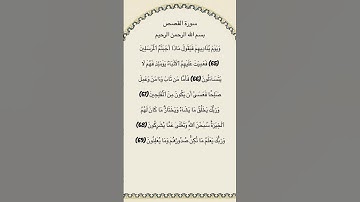 سورة القصص
بسم الله الرحمن الرحيم
وَيَوْمَ يُنَادِيهِمْ فَيَقُولُ مَاذَا أَجَبْتُمُ الْمُرْسَلِينَ
(65) فَعَمِيَتْ عَلَيْهِمُ الْأَنْبَاءُ يَوْمَئِذٍ فَهُمْ لَا
يَتَسَاءَلُونَ (66) فَأَمَّا مَنْ تَابَ وَآمَنَ وَعَمِلَ
صَالِحًا فَعَسَىٰ أَنْ يَكُونَ مِنَ الْمُفْلِحِينَ (67)
وَرَبُّكَ يَخْلُقُ مَا يَشَاءُ وَيَخْتَارُ مَا كَانَ لَهُمُ
الْخِيَرَةُ سُبْحَانَ اللَّهِ وَتَعَالَىٰ عَمَّا يُشْرِكُونَ (68)
وَرَبُّكَ يَعْلَمُ مَا تُكِنُّ صُدُورُهُمْ وَمَا يُعْلِنُونَ (69)